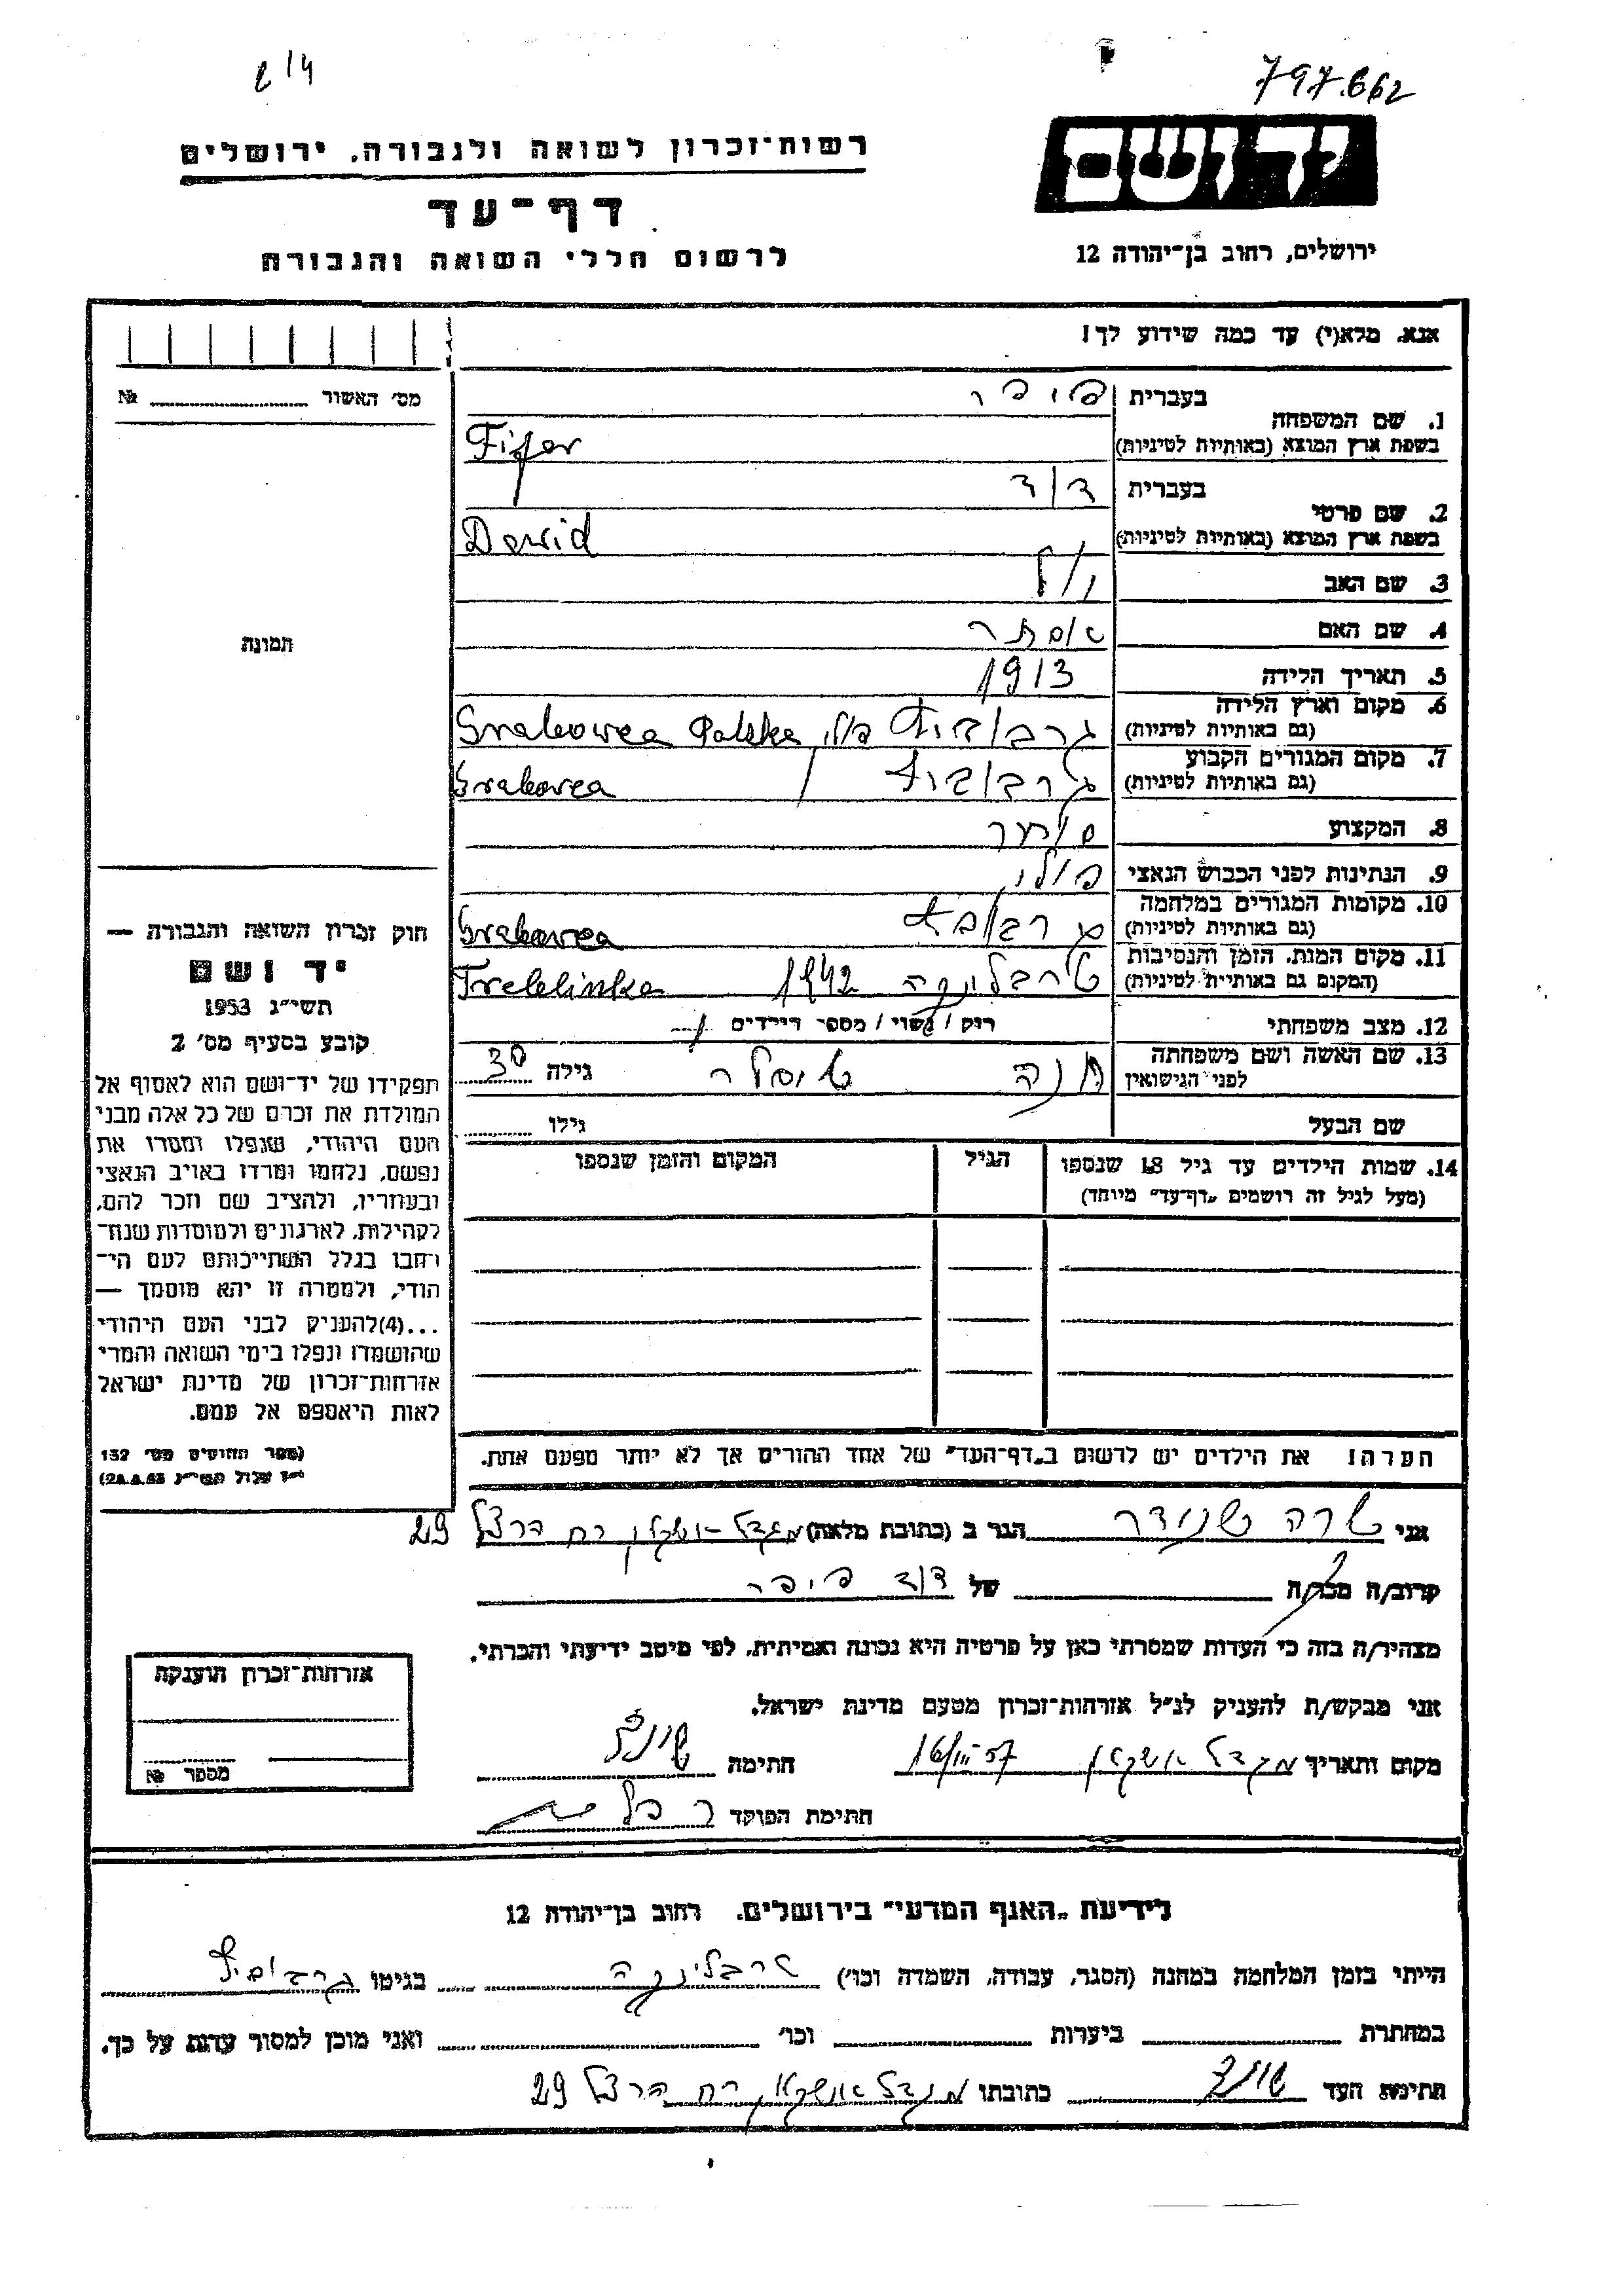 797.662
רשות־זכרון לשואה ולגבורה, ירושלים
יד ושם
דף־עד
לרשום חללי השואה והגבורה
ירושלים, רחוב בן־יהודה 12
אנא, מלא(י) עד כמה שידוע לך!
מס׳ האשור № 
1. שם המשפחה בעברית פיפר
בשפת ארץ המוצא (באותיות לטיניות) Fifer
2. שם פרטי בעברית דוד
בשפת ארץ המוצא (באותיות לטיניות) Dawid
3. שם האב
4. שם האם אסתר
תמונה
5. תאריך הלידה 1913
6. מקום וארץ הלידה
(גם באותיות לטיניות) Polska
7. מקום המגורים הקבוע
(גם באותיות לטיניות)
8. המקצוע סוחר
9. הנתינות לפני הכבוש הנאצי
10. מקומות המגורים במלחמה
(גם באותיות לטיניות)
11. מקום המות, הזמן והנסיבות
(המקום גם באותיות לטיניות) טרבלינקה 1942 Treblinka
12. מצב משפחתי רוק / נשוי / מספר הילדים
13. שם האשה ושם משפחתה חנה גילה 30
לפני הנישואין
שם הבעל גילו
14. שמות הילדים עד גיל 18 שנספו הגיל המקום והזמן שנספו
(מעל לגיל זה רושמים „דף־עד״ מיוחד)
חוק זכרון השואה והגבורה —
יד ושם
תשי״ג 1953
קובע בסעיף מס׳ 2
תפקידו של יד־ושם הוא לאסוף אל
המולדת את זכרם של כל אלה מבני
העם היהודי, שנפלו ומסרו את
נפשם, נלחמו ומרדו באויב הנאצי
ובעוזריו, ולהציב שם וזכר להם,
לקהילות, לארגונים ולמוסדות שנח־
רחבו בגלל השתייכותם לעם הי־
הודי, ולמטרה זו יהא מוסמך —
...(4)להעניק לבני העם היהודי
שהושמדו ונפלו בימי השואה והמרי
אזרחות־זכרון של מדינת ישראל
לאות היאספם אל עמם.
(ספר החוקים מס׳ 132
הערה! את הילדים יש לרשום ב„דף־העד״ של אחד ההורים אך לא יותר מפעם אחת.
אני שרה שניידר הגר ב (כתובת מלאה) מגדל אשקלון רח הרצל 29
קרוב/ה מכר/ה של דוד פיפר
מצהיר/ה בזה כי העדות שמסרתי כאן על פרטיה היא נכונה ואמיתית, לפי מיטב ידיעתי והכרתי.
אני מבקש/ת להעניק לנ״ל אזרחות־זכרון מטעם מדינת ישראל.
מקום ותאריך מגדל אשקלון 16/III 57 חתימה
חתימת הפוקד
אזרחות־זכרון הוענקה
מספר №
לידיעת „האגף המדעי״ בירושלים, רחוב בן־יהודה 12
הייתי בזמן המלחמה במחנה (הסגר, עבודה, השמדה וכו׳) טרבלינקה בגיטו
במחתרת ביערות וכו׳ ואני מוכן למסור עדות על כך.
חתימת העד כתובתו מגדל אשקלון רח הרצל 29